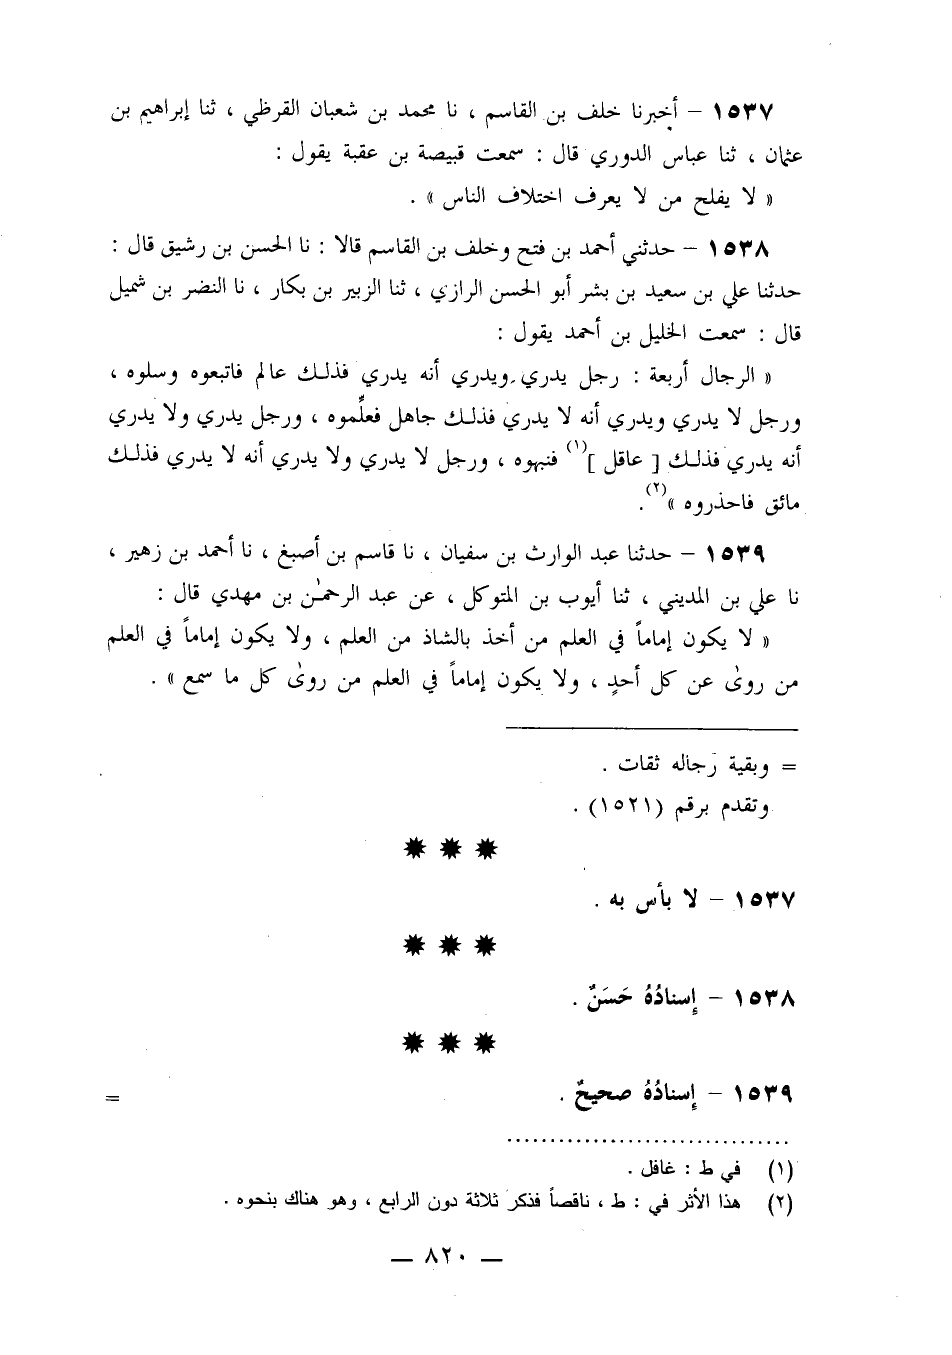 ١٥٣٧ – أخبرنا خلف بن القاسم ، نا محمد بن شعبان القرظي ، ثنا إبراهيم بن
عثمان ، ثنا عباس الدوري قال : سمعت قبيصة بن عقبة يقول :
« لا يفلح من لا يعرف اختلاف الناس » .
١٥٣٨ – حدثني أحمد بن فتح وخلف بن القاسم قالا : نا الحسن بن رشيق قال :
حدثنا علي بن سعيد بن بشر أبو الحسن الرازي ، ثنا الزبير بن بكار ، نا النضر بن شميل
قال : سمعت الخليل بن أحمد يقول :
« الرجال أربعة : رجل يدري ويدري أنه يدري فذلك عالم فاتبعوه وسلوه ،
ورجل لا يدري ويدري أنه لا يدري فذلك جاهل فعلِّموه ، ورجل يدري ولا يدري
أنه يدري فذلك [ عاقل ](١) فنبهوه ، ورجل لا يدري ولا يدري أنه لا يدري فذلك
مائق فاحذروه »(٢).
١٥٣٩ – حدثنا عبد الوارث بن سفيان ، نا قاسم بن أصبغ ، نا أحمد بن زهير ،
نا علي بن المديني ، ثنا أيوب بن المتوكل ، عن عبد الرحمٰن بن مهدي قال :
« لا يكون إماماً في العلم من أخذ بالشاذ من العلم ، ولا يكون إماماً في العلم
من روىٰ عن كل أحدٍ ، ولا يكون إماماً في العلم من روىٰ كل ما سمع » .
= وبقية رجاله ثقات .
وتقدم برقم (١٥٢١) .
١٥٣٧ – لا بأس به .
١٥٣٨ – إسنادُهُ حَسَنٌ .
١٥٣٩ – إسنادُهُ صحيحٌ . =
(١) في ط : غافل .
(٢) هذا الأثر في : ط ، ناقصاً فذكر ثلاثة دون الرابع ، وهو هناك بنحوه .
— ٨٢٠ —